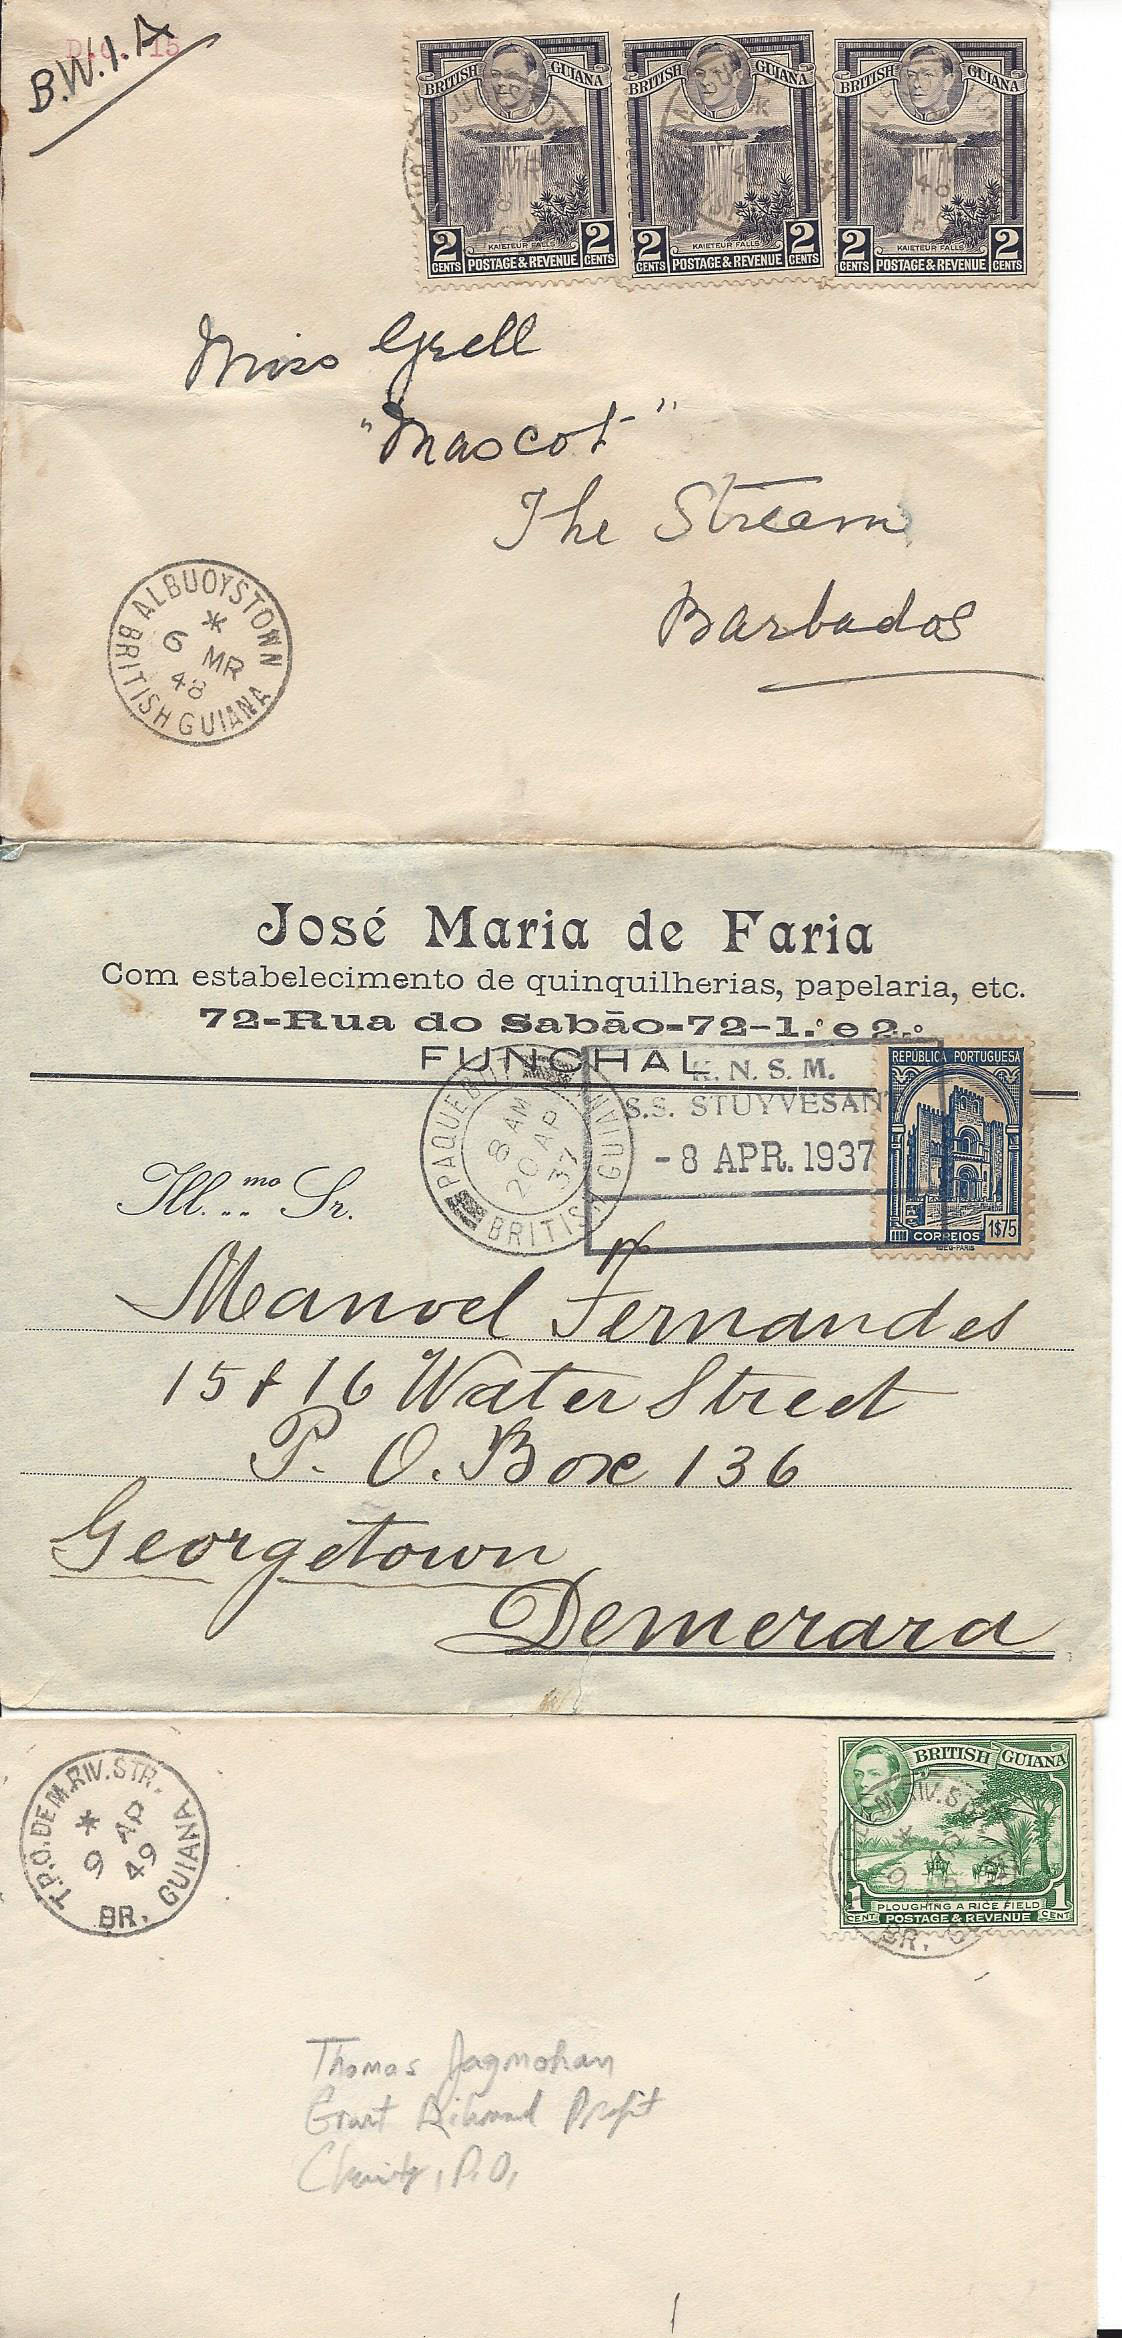 B.W.I.A
BRITISH GUIANA
KAIETEUR FALLS
2 CENTS POSTAGE & REVENUE 2 CENTS
BRITISH GUIANA
KAIETEUR FALLS
2 CENTS POSTAGE & REVENUE 2 CENTS
BRITISH GUIANA
KAIETEUR FALLS
2 CENTS POSTAGE & REVENUE 2 CENTS
Miss Grell
"Mascot"
The Stream
Barbados
ALBUOYSTOWN
6 MR
48
BRITISH GUIANA
José Maria de Faria
Com estabelecimento de quinquilherias, papelaria, etc.
72-Rua do Sabão-72-1.º e 2.º
FUNCHAL
K. N. S. M.
S.S. STUYVESAN
-8 APR. 1937
REPÚBLICA PORTUGUESA
CORREIOS 1$75
PAQUEBOT
8 AM
20 AP
37
BRITISH GUIANA
Ill.mo Sr.
Manoel Fernandes
15 & 16 Water Street
P. O. Box 136
Georgetown
Demerara
T.P.O. DEM.RIV.STR.
* AP
9 49
BR. GUIANA
BRITISH GUIANA
PLOUGHING A RICE FIELD
1 CENT POSTAGE & REVENUE 1 CENT
Thomas Jagmohan
Grant Profit
Charity, P.O,